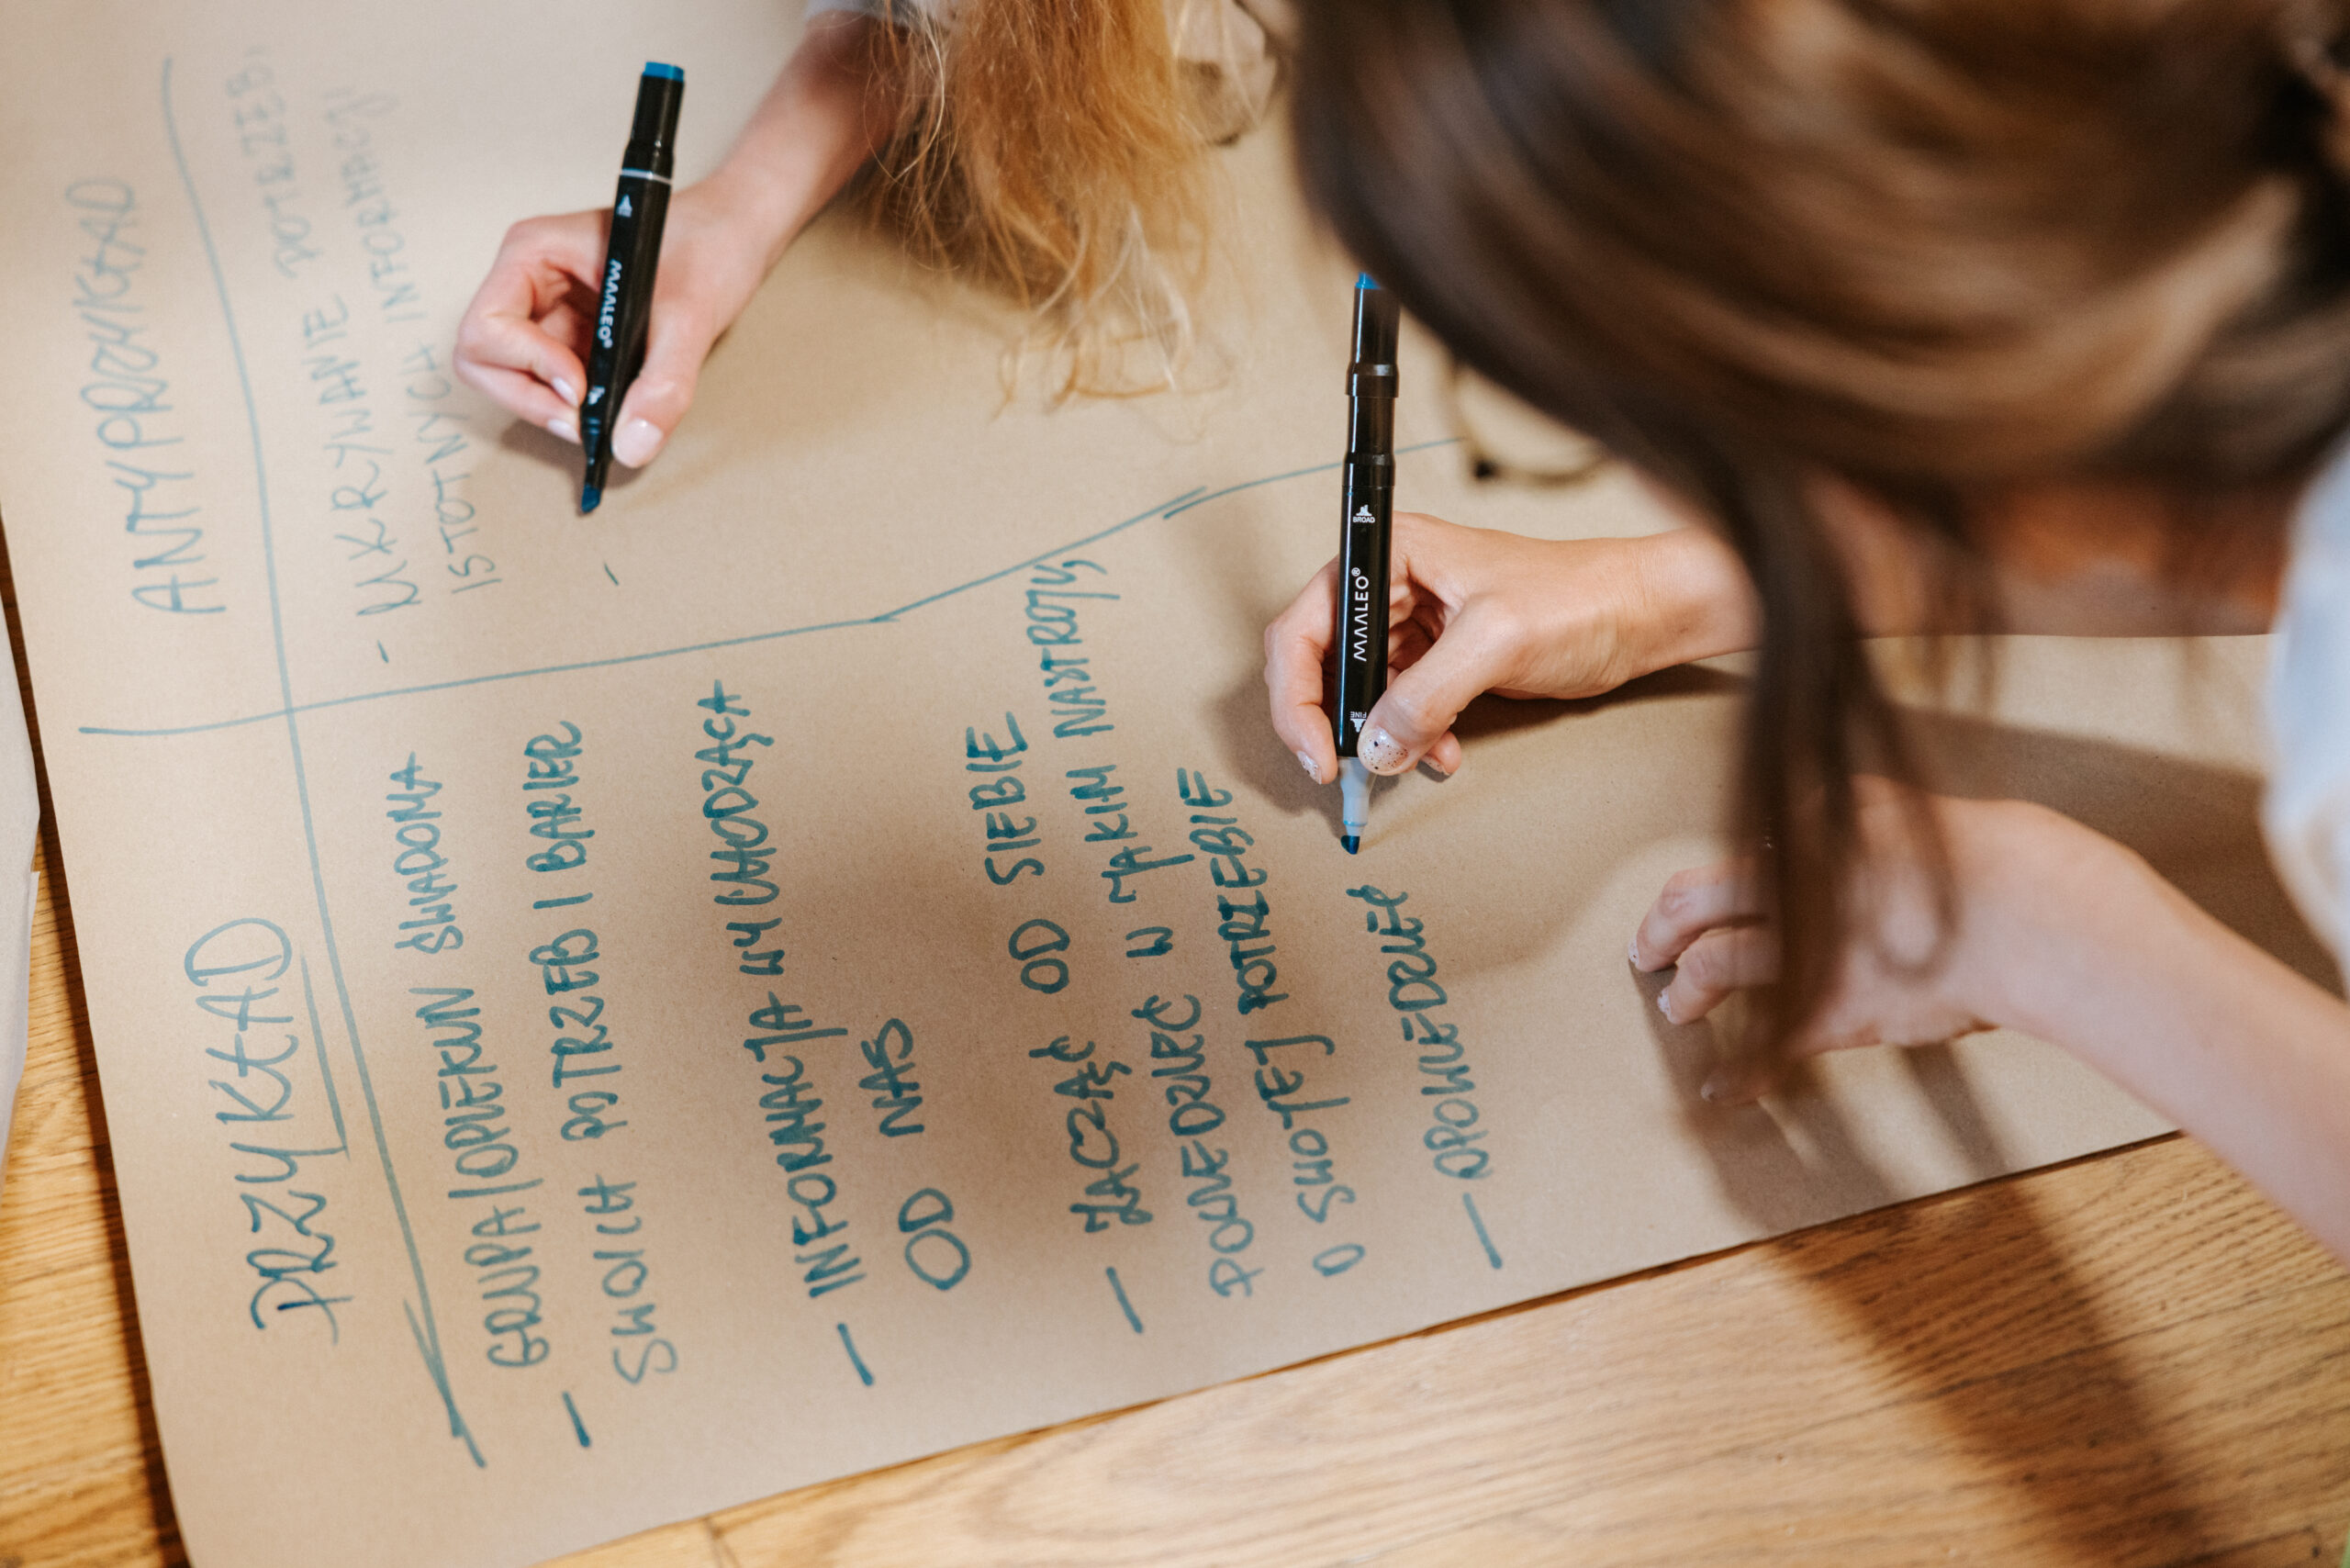 PRZYKŁAD
- GRUPA/OPIEKUN ŚWIADOMA
SWOICH POTRZEB I BARIER
- INFORMACJA WYCHODZĄCA
OD NAS
- ZACZĄĆ OD SIEBIE
POWIEDZIEĆ W TAKIM NASTROJU
O SWOJEJ POTRZEBIE
-
ANTYPRZYKŁAD
- UKRYWANIE POTRZEB,
ISTOTNYCH INFORMACJI
-
MAALEO®
MAALEO®
BROAD
FINE